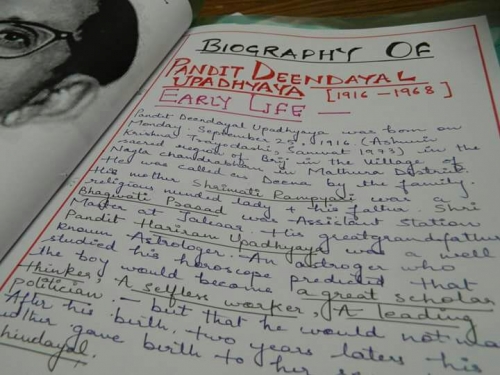 BIOGRAPHY OF
PANDIT DEENDAYAL
UPADHYAYA [1916-1968]
EARLY LIFE —
Pandit Deendayal Upadhyaya was born on
Monday September 25, 1916. (Ashwin
Krishna Trayodashi Samvat 1993) in the
sacred region of Brij in the Village of
Nagla chandrabhan in Mathura District.
He was called as Deena by the family.
His mother Shrimati Rampyari was a
religious minded lady & his father Shri
Bhagwati Prasad was Assistant Station
Master at Jalesar. His greatgrandfather
Pandit Hariram Upadhyaya was a well
known Astrologer. An astroger who
studied his horoscope predicted that
the boy would become a great scholar
thinker, A selfless worker, A leading
politician — but that he would not
After his birth, two years laters his
mother gave birth to her
hindayal.